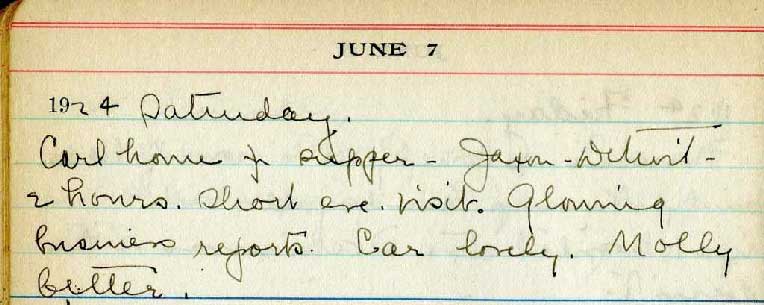 JUNE 7
1924 Saturday.
Carl home for supper - Jaxon - Detroit -
2 hours. Short eve. visit. Glowing
business reports. Car lovely. Molly
better.